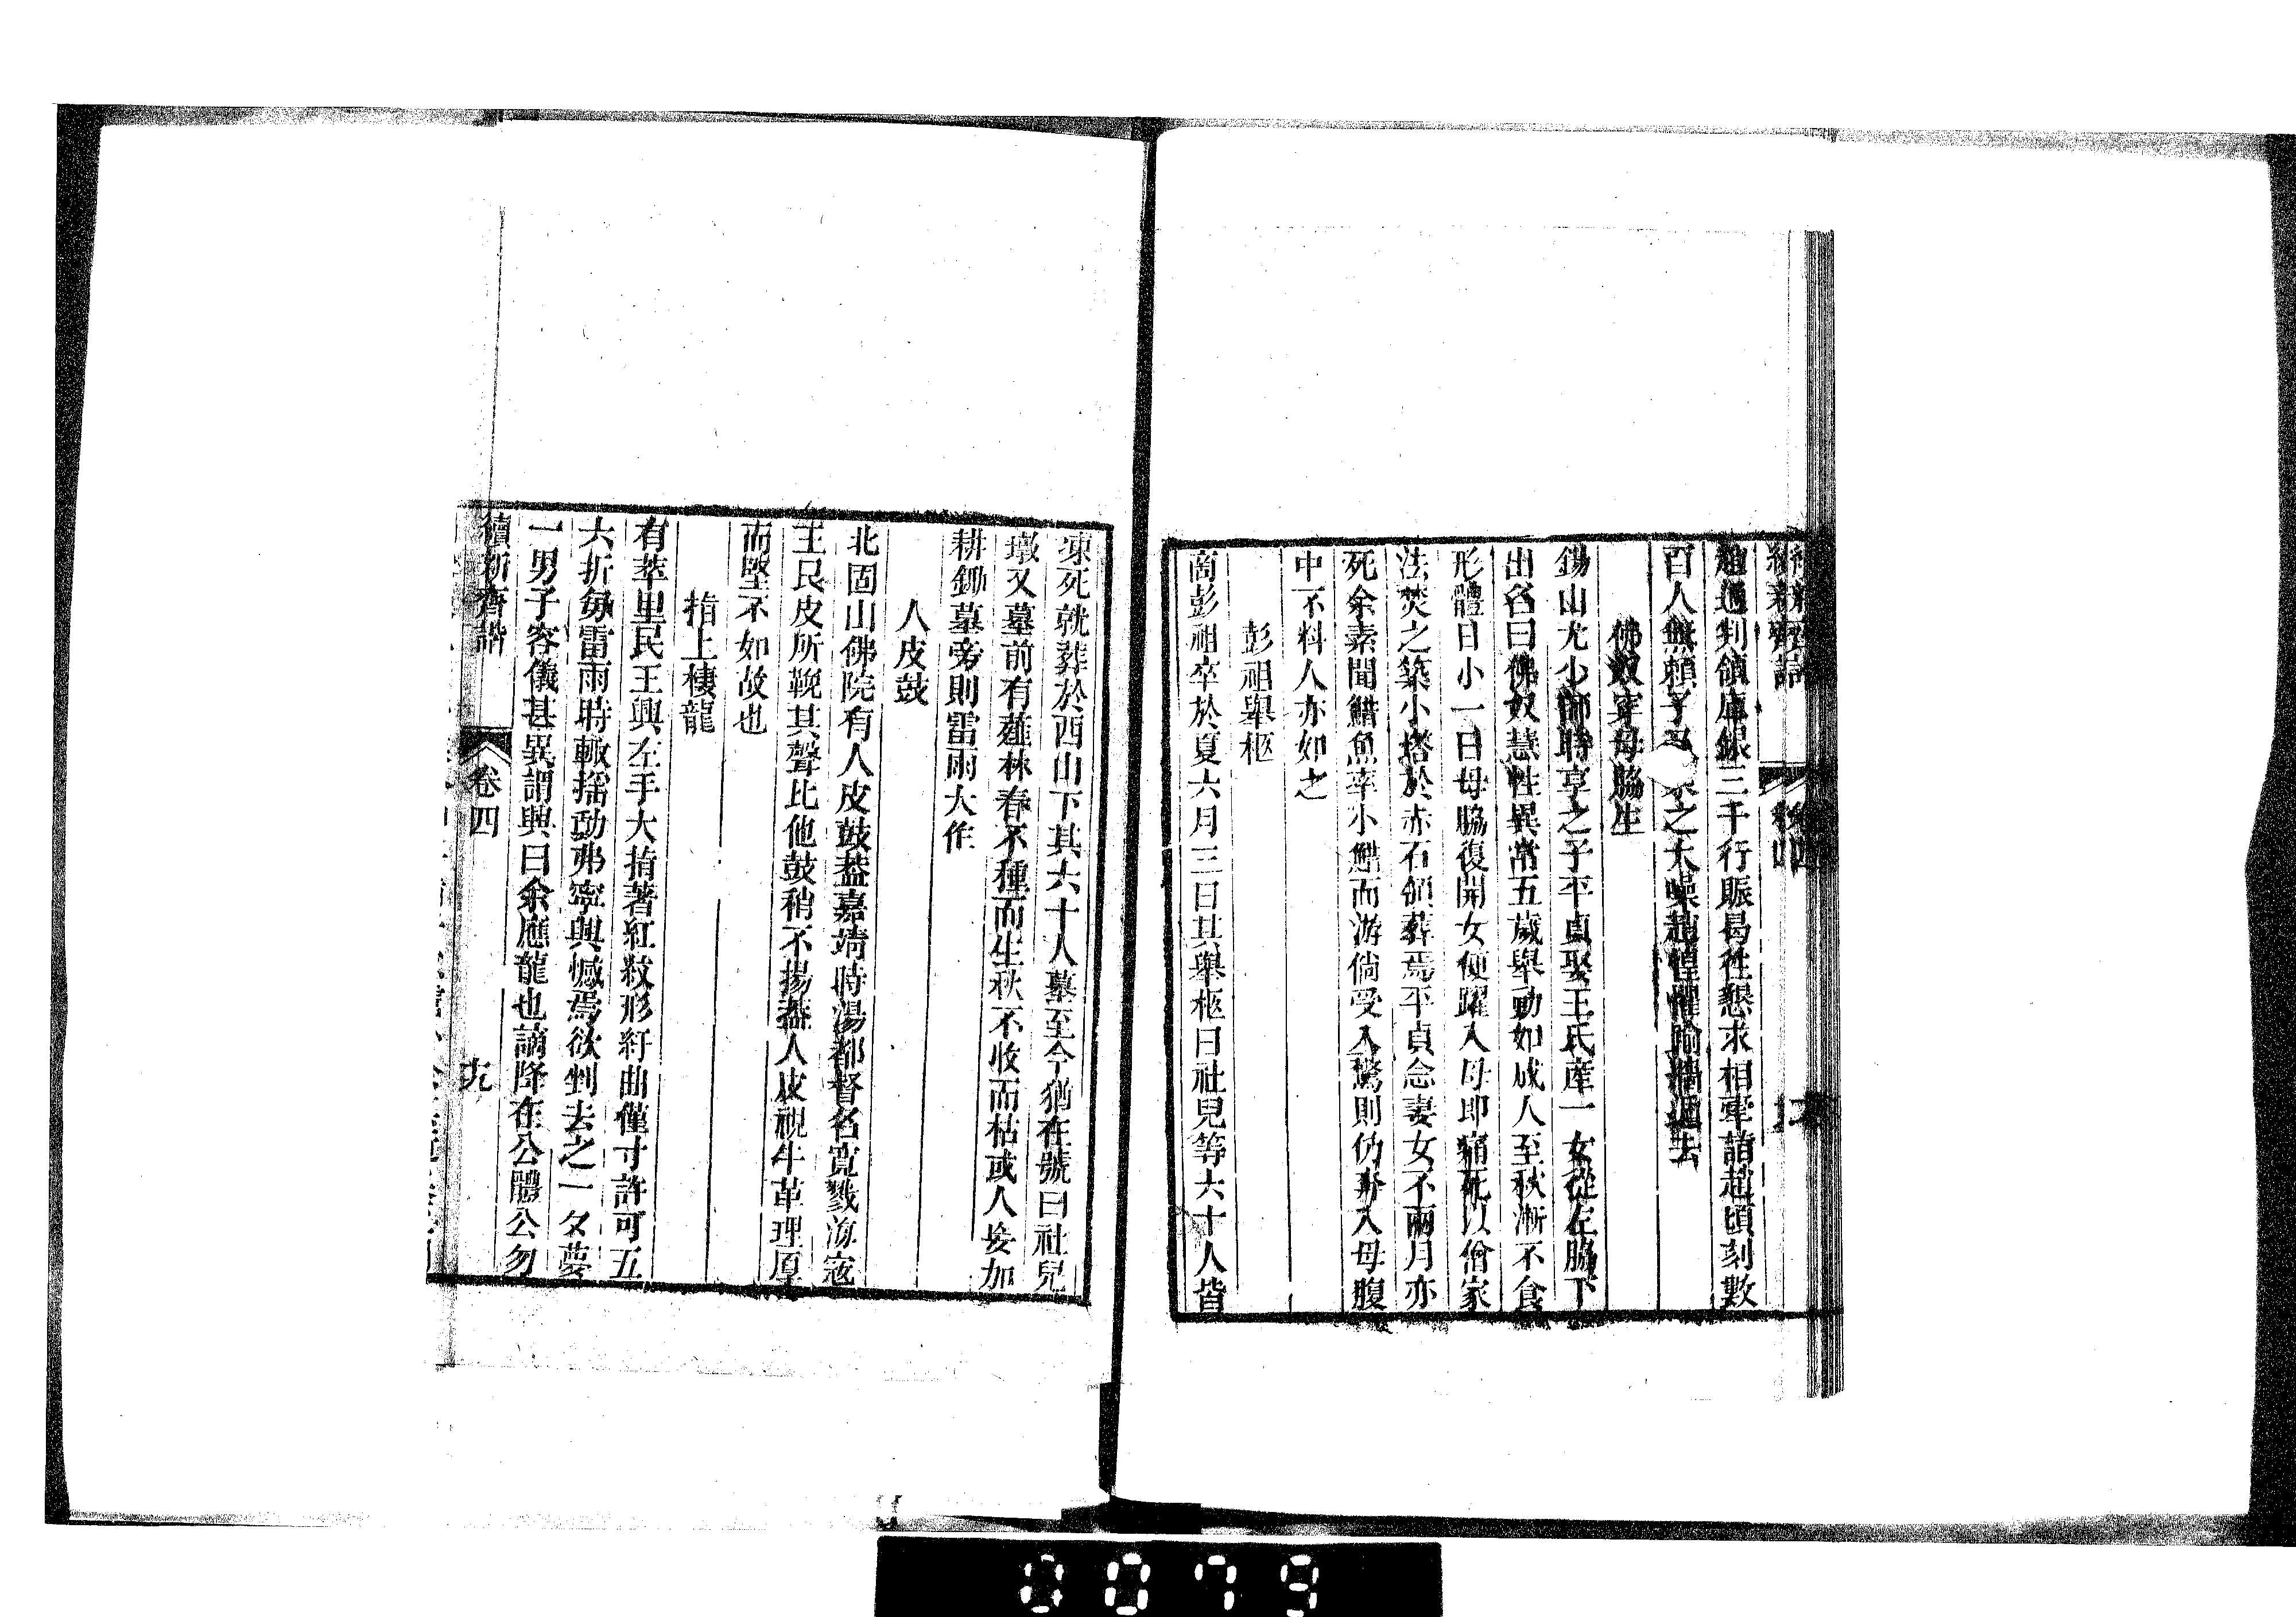 續新齊諧
卷四
趙通判領庫銀三千行賑曷往懇求相牽詣趙頃刻數
百人無賴子之大噪趙惶懼踰牆遁去
佛奴穿母脇生
錫山尤少師時享之子平貞娶王氏產一女從左脇下
出名曰佛奴慧性異常五歲舉動如成人至秋漸不食
形體日小一日母脇復開女便躍入母即痛死以僧家
法焚之築小塔於赤石領葬焉平貞念妻女不兩月亦
死余素聞䱜魚率小䱜而游倘受入驚則仍奔入母腹
中不料人亦如之
彭祖舉柩
商彭祖卒於夏六月三日其舉柩日社兒等六十人皆
凍死就葬於西山下其六十人墓至今猶在號曰社兒
墩又墓前有薤林春不種而生秋不收而枯或人妄加
耕鋤墓旁則雷雨大作
人皮鼓
北固山佛院有人皮鼓葢嘉靖時湯都督名寬戮海寇
王艮皮所鞔其聲比他鼓稍不揚葢人皮視牛革理厚
而堅不如故也
指上棲龍
有萃里民王興左手大指著紅紋形紆曲僅寸許可五
六折每雷雨時輙搖動弗寧興憾焉欲剉去之一夕夢
一男子容儀甚異謂興曰余應龍也謫降在公體公勿
續新齊諧
卷四
十九